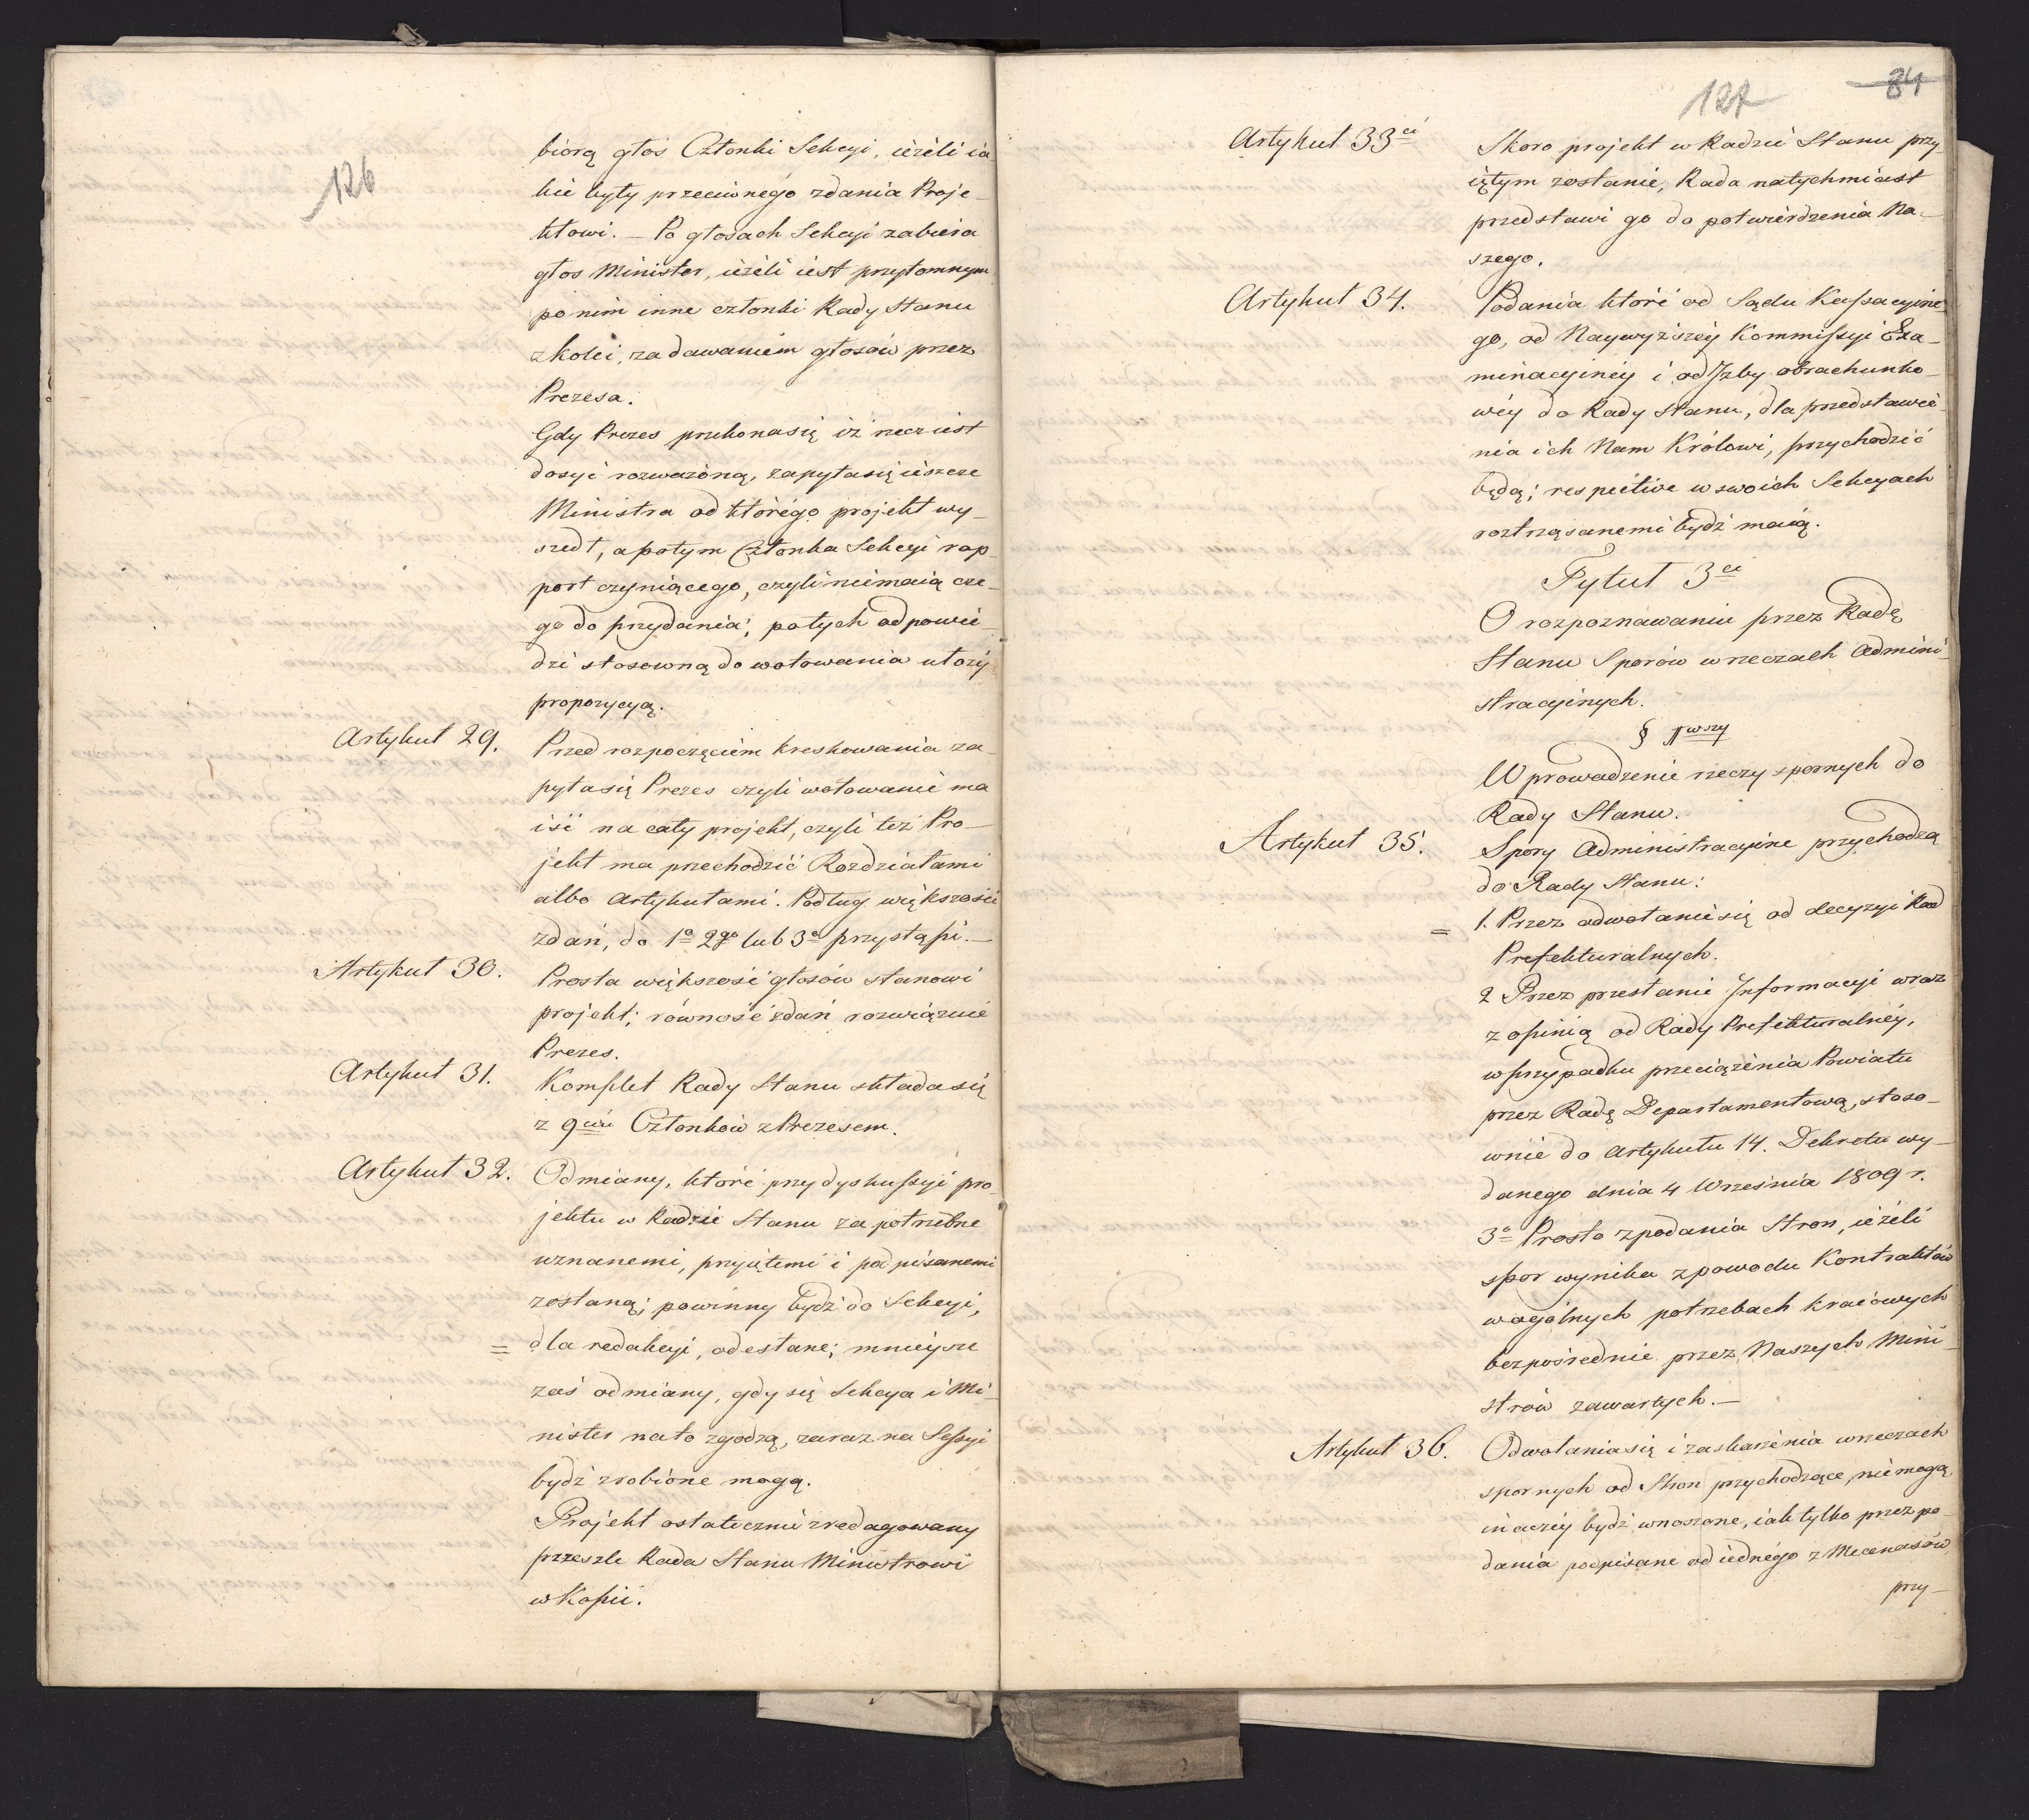 126
biorą głos Członki Sekcyi, ieżeli ia
kie były przeciwnego zdania Proje-
ktowi. — Po głosach Sekcyi zabiera
głos Minister, ieżeli iest przytomnym
po nim inne członki Rady Stanu
z kolei, za dawaniem głosów przez
Prezesa.
Gdy Prezes przekona się iż rzecz iest
dosyć rozważoną, zapyta się ieszcze
Ministra od którégo projekt wy-
szedł, a potym Członka Sekcyi rap-
port czyniącego, czyli niemaią cze-
go do przydania; po tych odpowie-
dzi stosowną do wotowania ułoży
propozycyą.
Artykuł 29.
Przed rozpoczęciem kreskowania za-
pyta się Prezes czyli wotowanie ma
iść na cały projekt, czyli też Pro-
jekt ma przechodzić Rozdziałami
albo Artykułami. Podług większości
zdań, do 1o 2go lub 3o przystąpi. —
Artykuł 30.
Prosta większość głosów stanowi
projekt; równość zdań rozwiąznie
Prezes.
Artykuł 31.
Komplet Rady Stanu składa się
z 9ciu Członków z Prezesem.
Artykuł 32.
Odmiany, któré przy dyskussyi pro-
jektu w Radzie Stanu za potrzebne
uznanemi, przyiętemi i podpisanemi
zostaną; powinny bydź do Sekcyi,
= dla redakcyi, odesłane; mnieysze
zaś odmiany, gdy się Sekcya i Mi-
nister na to zgodzą, zaraz na Sessyi
bydź zrobione mogą.
Projekt ostatecznie zredagowany
przeszle Rada Stanu Ministrowi
w Kopii.
127
84
Artykuł 33ci
Skoro projekt w Radzie Stanu przy-
iętym zostanie, Rada natychmiast
przedstawi go do potwierdzenia Na-
szego.
Artykuł 34.
Podania któré od Sądu Kassacyine-
go, od Naywyższéy Kommissyi Exa-
minacyinéy i od Izby obrachunko-
wéy do Rady Stanu, dla przedstawie-
nia ich Nam Królowi, przychodzić
będą; respective w swoich Sekcyach
roztrząsanemi bydź maią.
Tytuł 3ci
O rozpoznawaniu przez Radę
Stanu Sporów w rzeczach Admini-
stracyinych.
§ 1wszy
Wprowadzenie rzeczy spornych do
Rady Stanu.
Artykuł 35.
Spory Administracyine przychodzą
do Rady Stanu:
= 1. Przez odwołanie się od decyzyi Rad
Prefekturalnych.
2 Przez przesłanie Informacyi wraz
z opinią od Rady Prefekturalnéy,
w przypadku przeciążenia Powiatu
przez Radę Departamentową, stoso-
wnie do Artykułu 14. Dekretu wy-
danego dnia 4 Września 1809 r.
3o Prosto z podania Stron, ieżeli
spor wynika z powodu Kontraktów
w ogólnych potrzebach kraiowych
bezpośrednie przez Naszych Mini-
strów zawartych. —
Artykuł 36.
Odwołania się i zaskarżenia w rzeczach
spornych od Stron przychodzące, nie mogą
inaczéy bydź wnoszone, iak tylko przez po-
dania podpisane od iednégo z Mecenasów
przy-